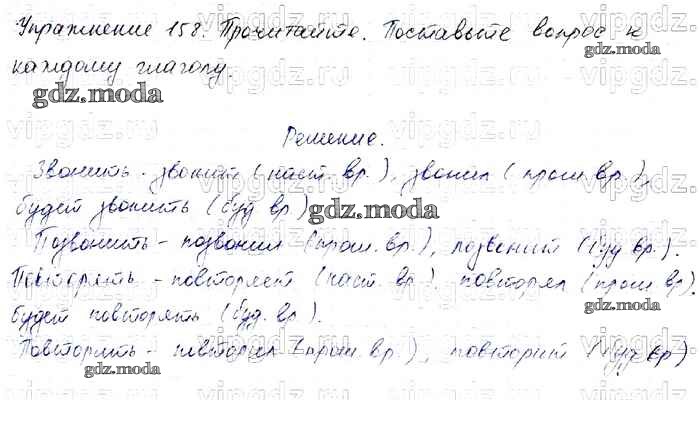 Упражнение 158. Прочитайте. Поставьте вопрос к
каждому глаголу.
gdz.moda
Решение.
Звонить - звонит (наст. вр.), звонил (прош. вр.),
будет звонить (буд. вр.)
Позвонить - позвонил (прош. вр.), позвонит (буд. вр.).
Повторять - повторяет (наст. вр.), повторял (прош. вр.),
будет повторять (буд. вр.).
Повторить - повторил (прош. вр.), повторит (буд. вр.)